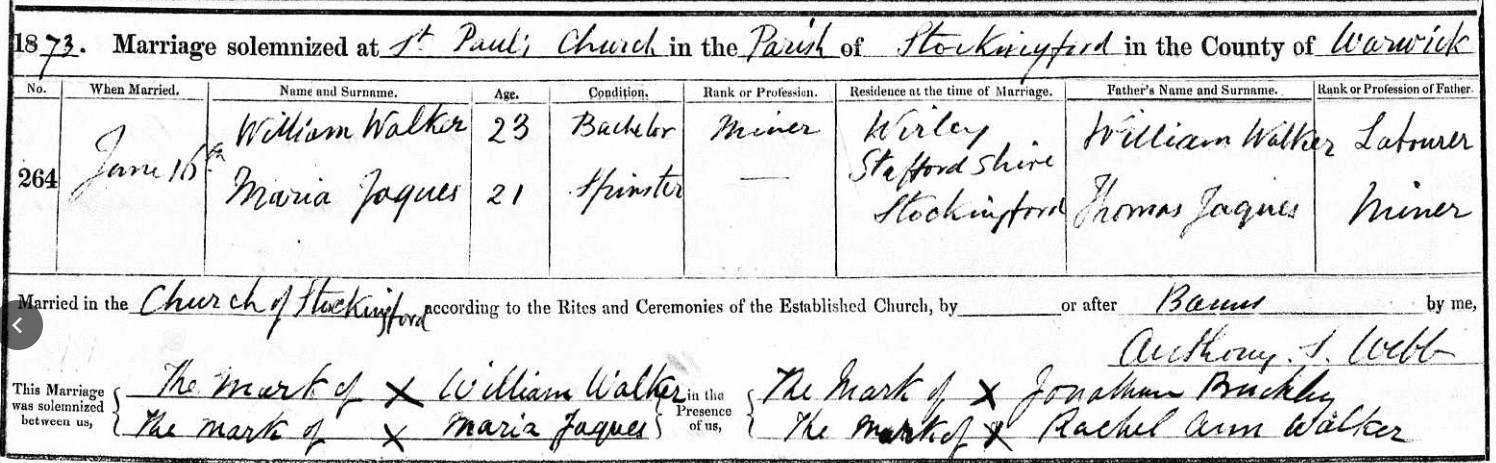 1873. Marriage solemnized at St Paul's Church in the Parish of Stockingford in the County of Warwick
No. When Married. Name and Surname. Age. Condition. Rank or Profession. Residence at the time of Marriage. Father's Name and Surname. Rank or Profession of Father.
264 June 16th William Walker 23 Bachelor Miner Wirley Staffordshire William Walker Labourer
Maria Jaques 21 Spinster — Stockingford Thomas Jaques Miner
Married in the Church of Stockingford according to the Rites and Ceremonies of the Established Church, by or after Banns by me,
Anthony. S. Webb
This Marriage was solemnized between us, The Mark of X William Walker in the Presence of us, The Mark of X Jonathan Buckley
The mark of X Maria Jaques The mark of X Rachel Ann Walker